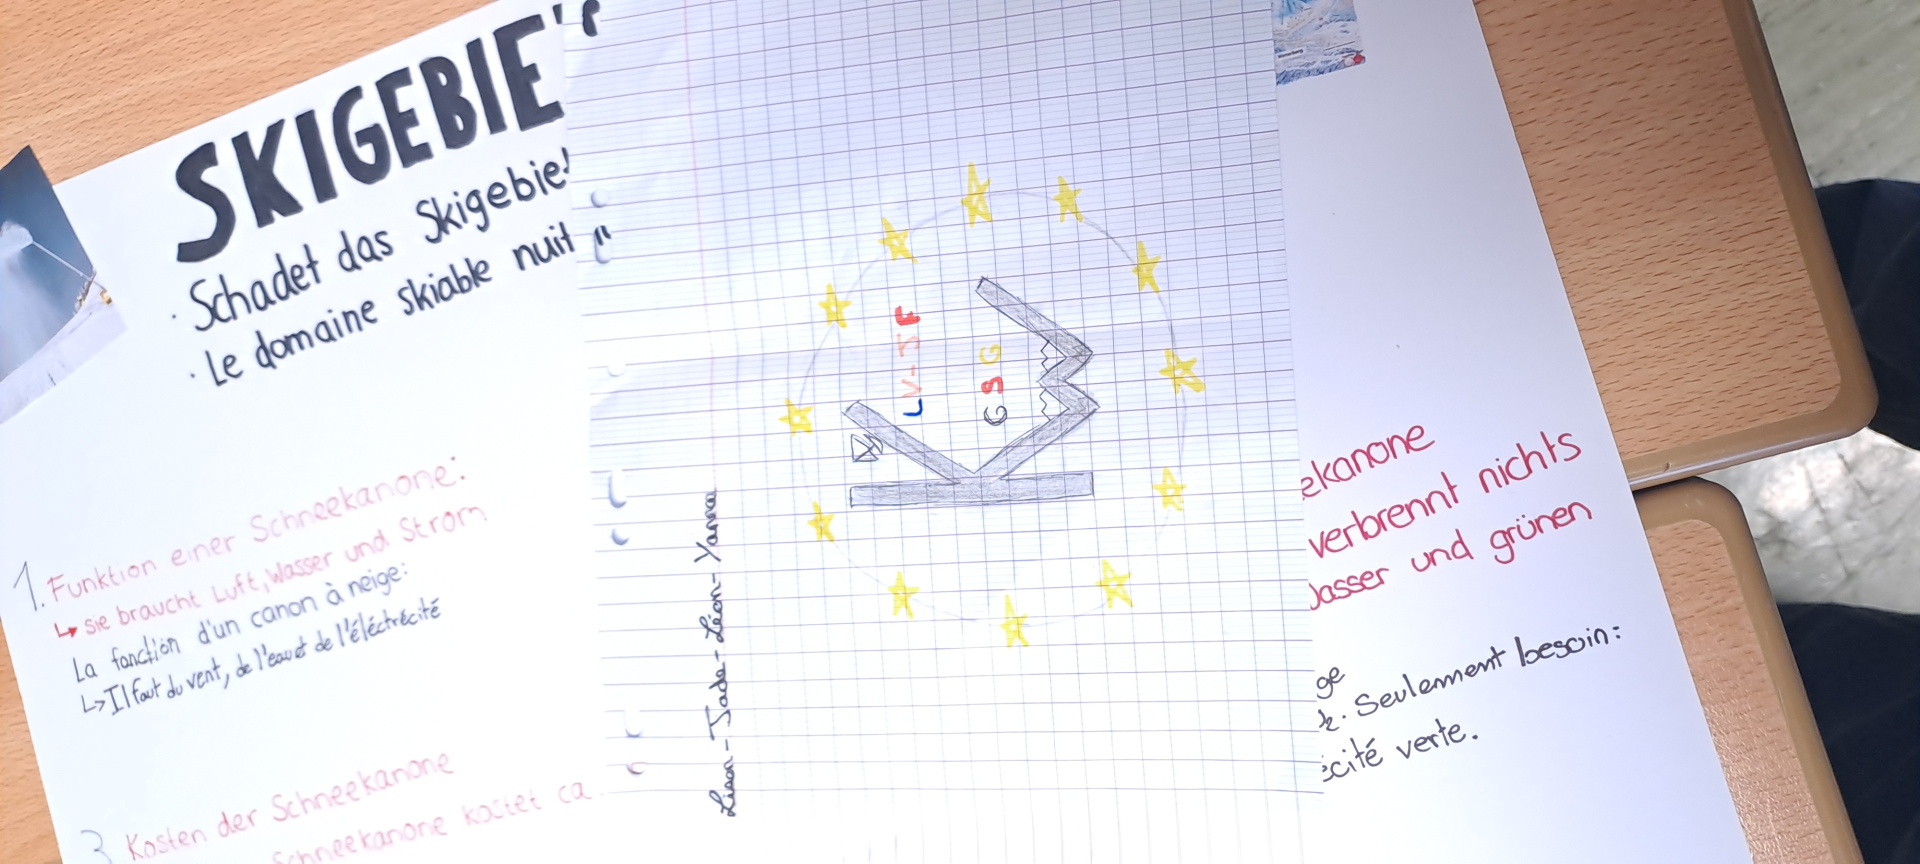 SKIGEBIE
· Schadet das Skigebiet
· Le domaine skiable nuit
1. Funktion einer Schneekanone:
↳ sie braucht Luft, Wasser und Strom
La fonction d'un canon à neige:
↳ Il faut du vent, de l'eau et de l'éléctrécité
3 Kosten der Schneekanone
Schneekanone kostet ca
Jade - Léon - Yanna
LV-JF
GSG
ekanone
verbrennt nichts
asser und grünen
ge
Seulement besoin:
écité verte.